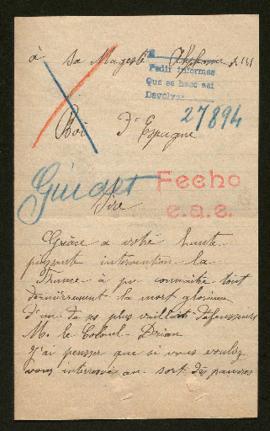 à Sa Majesté Alphonse XIII
Pedir informes
Que se hace asi
Devolver
27894
Roi d'Espagne
Fecho
Sire
e.a.e.
Grâce a votre haute
puissante intervention la
France à pu connaitre tout
dernièrement la mort glorieuse
d'un de ses plus vaillants défenseurs
M. le Colonel Drian
J'ai penser que si vous vouliez
vous interressé au sort des pauvres